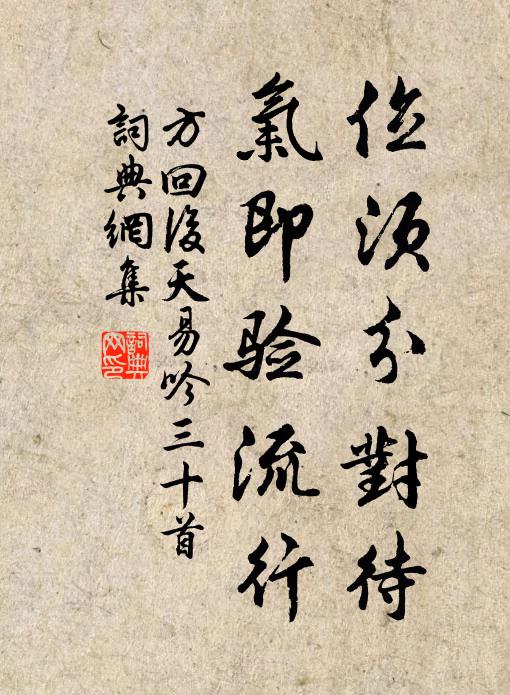 位須分對待
氣即验流行
方回後天易吟三十首
詞典網集
詞典
网印